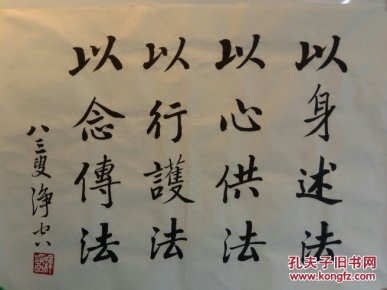 以身述法
以心供法
以行護法
以念傳法
八三叟淨空
孔夫子旧书网